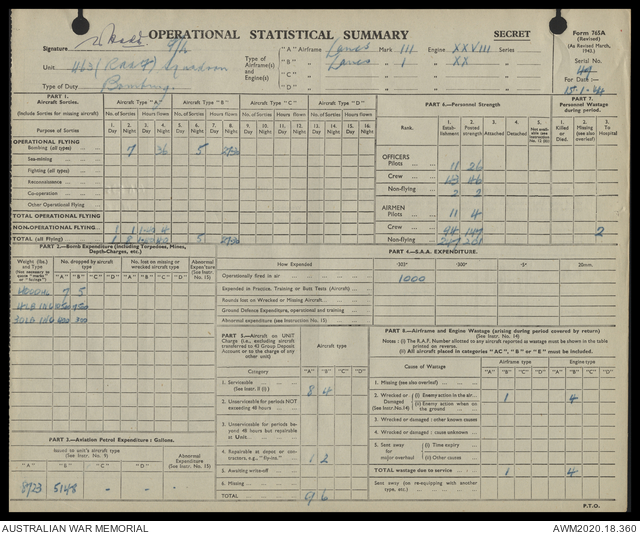 OPERATIONAL STATISTICAL SUMMARY
SECRET
Form 765A
(Revised)
(As Revised March, 1943.)
Signature
Unit 463 (RAAF) Squadron
Type of Duty Bombing
Type of Airframe(s) and Engine(s)
"A" Airframe Lancs Mark III Engine XXVIII Series
"B" Lancs 1 XX
"C"
"D"
Serial No. 49
For Date:—
15-1-44
PART 1.
Aircraft Sorties.
(Include Sorties for missing aircraft)
Purpose of Sorties
Aircraft Type "A" Aircraft Type "B" Aircraft Type "C" Aircraft Type "D"
No. of Sorties Hours flown No. of Sorties Hours flown No. of Sorties Hours flown No. of Sorties Hours flown
1. Day 2. Night 3. Day 4. Night 5. Day 6. Night 7. Day 8. Night 9. Day 10. Night 11. Day 12. Night 13. Day 14. Night 15. Day 16. Night
OPERATIONAL FLYING
Bombing (all types) 7 36 5
Sea-mining
Fighting (all types)
Reconnaissance
Co-operation
Other Operational Flying
TOTAL OPERATIONAL FLYING
NON-OPERATIONAL FLYING 1 1
TOTAL (all Flying) 1 8 5
PART 6.—Personnel Strength
Rank.
1. Establishment
2. Posted strength
3. Attached
4. Detached
OFFICERS
Pilots 11 26
Crew
Non-flying 2 2
AIRMEN
Pilots 11 4
Crew 94 147 2
Non-flying
PART 7.
Personnel Wastage during period.
1. Killed or Died.
2. Missing (see also overleaf)
3. To Hospital
PART 2.—Bomb Expenditure (including Torpedoes, Mines, Depth-Charges, etc.)
Weight (lbs.) and Type
No. dropped by aircraft type
No. lost on missing or wrecked aircraft type
Abnormal Expen'ture (See Instr. 15)
"A" "B" "C" "D" "A" "B" "C" "D"
7 5
4LB INC
30LB INC
How Expended
Operationally fired in air
Expended in Practice, Training or Butt Tests (Aircraft)
Rounds lost on Wrecked or Missing Aircraft
Ground Defence Expenditure, operational and training
Abnormal expenditure (see Instruction No. 15)
PART 4.—S.A.A. EXPENDITURE.
·303" ·300" ·5" 20mm.
1000
PART 5.—Aircraft on UNIT Charge (i.e., excluding aircraft transferred to 43 Group Deposit Account or to the charge of any other unit)
Aircraft type
Category "A" "B" "C" "D"
1. Serviceable (See Instr. 11 (i) ) 8 4
2. Unserviceable for periods NOT exceeding 48 hours
3. Unserviceable for periods beyond 48 hours but repairable at Unit.
4. Repairable at depot or contractors, e.g., "fly-ins." 1 2
5. Awaiting write-off
6. Missing
TOTAL 9 6
PART 8.—Airframe and Engine Wastage (arising during period covered by return)
(See Instr. No. 14)
Notes : (i) The R.A.F. Number allotted to any aircraft reported as wastage must be shown in the table printed on reverse.
(ii) All aircraft placed in categories "AC," "B" or "E" must be included.
Cause of Wastage
Airframe type Engine type
"A" "B" "C" "D" "A" "B" "C" "D"
1. Missing (see also overleaf)
2. Wrecked or Damaged (See Instr. No.14) (i) Enemy action in the air 1 4
(ii) Enemy action when on the ground
3. Wrecked or damaged : other known causes
4. Wrecked or damaged : cause unknown
5. Sent away for major overhaul (i) Time expiry
(ii) Other causes
TOTAL wastage due to service 1 4
Sent away (on re-equipping with another type, etc.)
PART 3.—Aviation Petrol Expenditure : Gallons.
Issued to unit's aircraft type (See Instr. No. 9)
Abnormal Expenditure (See Instr. No. 15)
"A" "B" "C" "D"
8723 5148 - -
P.T.O.
AUSTRALIAN WAR MEMORIAL
AWM2020.18.360